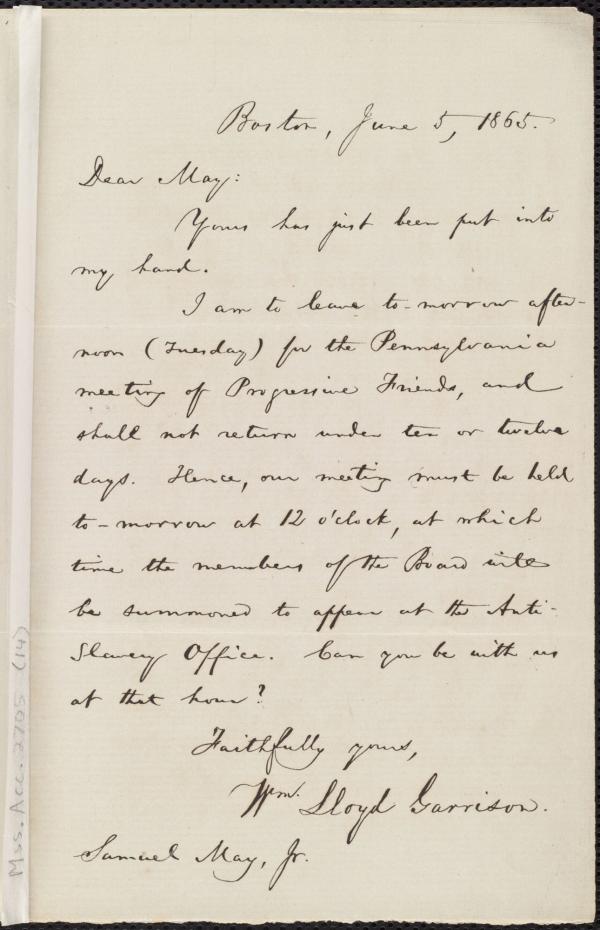 Boston, June 5, 1865.
Dear May:
Yours has just been put into
my hand.
I am to leave to-morrow after-
noon (Tuesday) for the Pennsylvania
meeting of Progressive Friends, and
shall not return under ten or twelve
days. Hence, our meeting must be held
to-morrow at 12 o'clock, at which
time the members of the Board will
be summoned to appear at the Anti-
Slavery Office. Can you be with us
at that hour?
Faithfully yours,
Wm. Lloyd Garrison.
Samuel May, Jr.
Mss. Acc. 2705 (14)